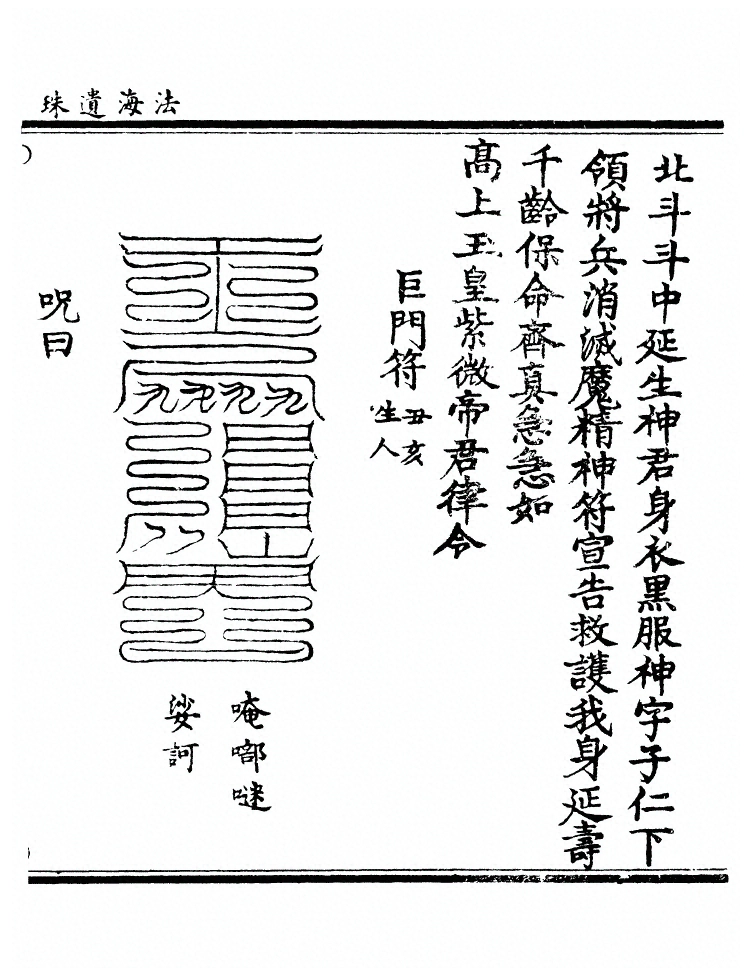 法海遺珠
北斗斗中延生神君身衣黒服神字子仁下
領將兵消滅魔精神符宣告救護我身延壽
千齡保命齊真急急如
高上玉皇紫微帝君律令
巨門符丑亥
生人
唵啣𠺗
娑訶
呪曰